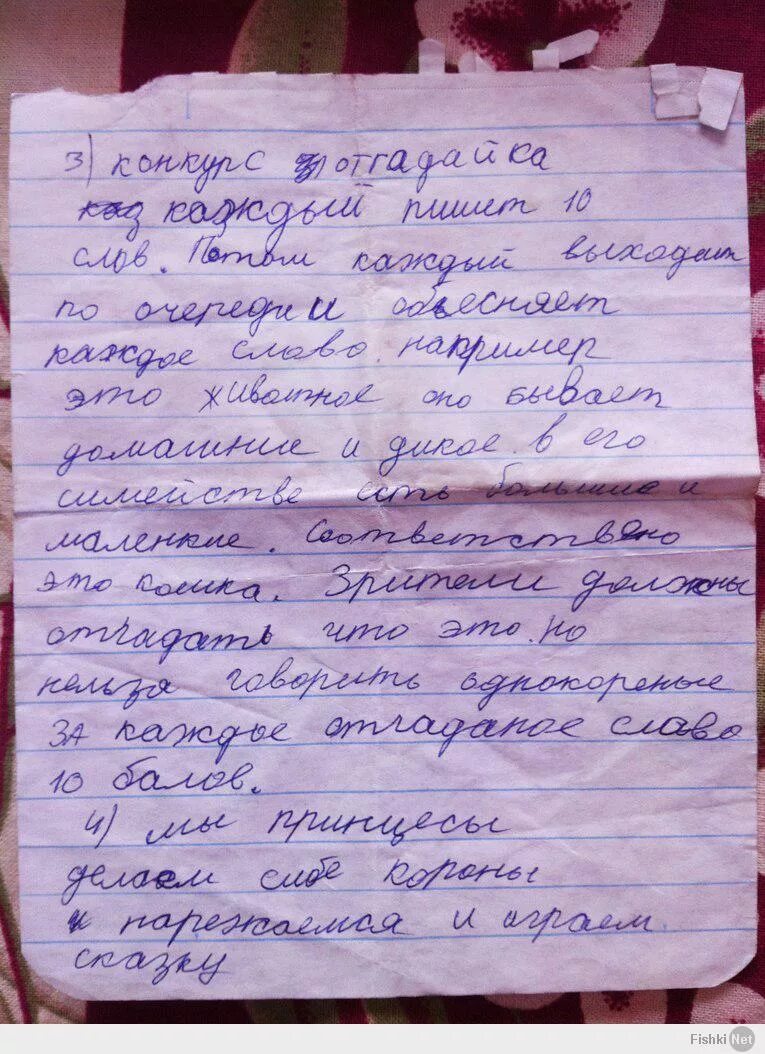 3) конкурс отгадайка
каждый пишет 10
слов. Потом каждый выходит
по очереди и обьесняет
каждое слово. например
это животное оно бывает
домашние и дикое. в его
симействе есть большие и
маленкие. Соответствено
это кошка. Зрители должны
отгадать что это. но
нельзя говорить однокореные
за каждые отгаданое слово
10 балов.
4) мы принцесы
делаем сибе короны
и нарежаемся и играем
сказку
Fishki Net